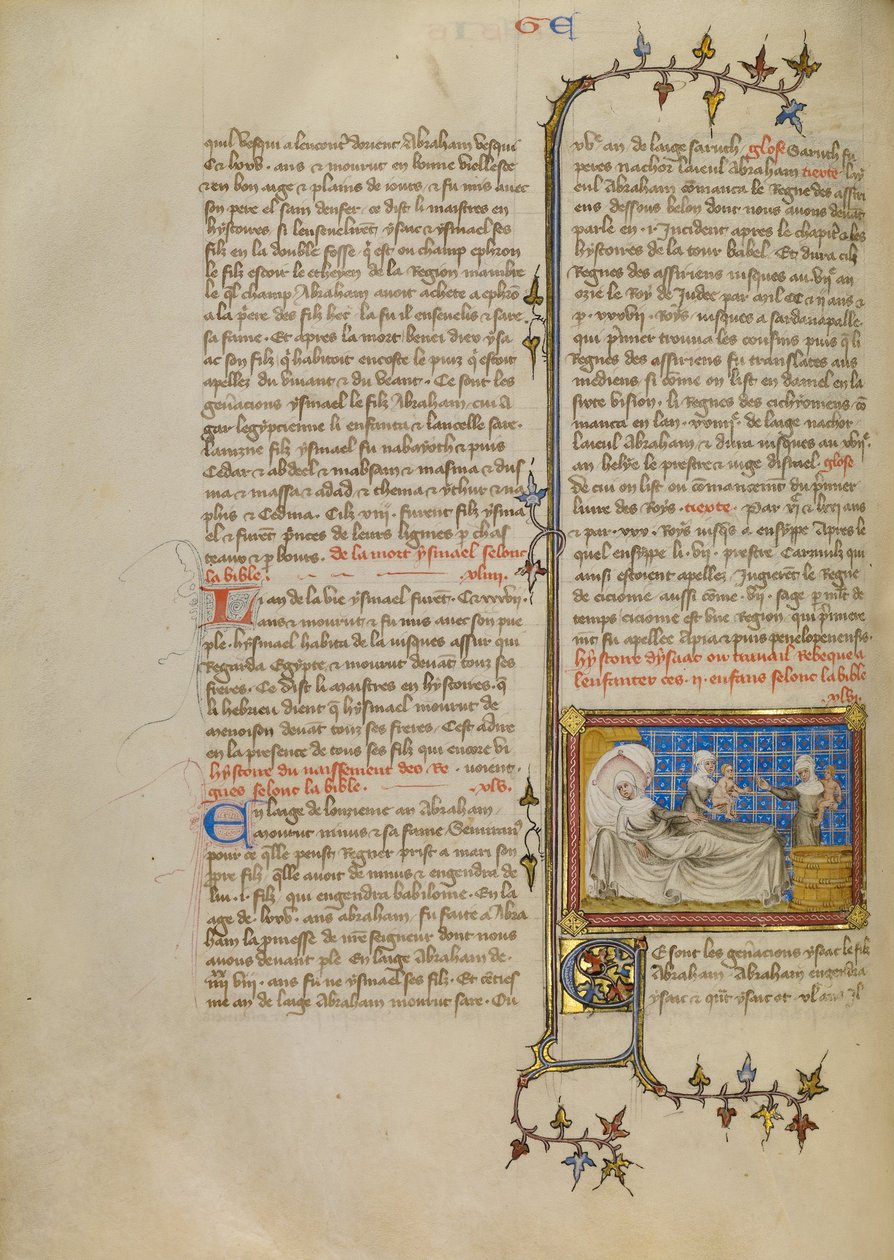 GE
quil vesqui a lencont' dorient / Abraham vesqui
C & lxxv . ans & mourut en bonne viellesce
& en bon aage & plains de iours , & fu mis avec
son pere el sain denfer , ce dist li maistres en
hystoires si lensevelirent ysaac & ysmael ses
filz en la double fosse q̄ est ou champ ephron
le filz escoir le etheyen de la Region mambre
le ql champ Abraham avoit achete a ephrō
a la p̄ere des filz het la fu il ensevelis & sare
sa fame . Et apres la mort benei dieu ysa
ac son filz q̄ habitoit encoste le puiz q̄ estoit
apellez du vivant & du veant . Ce sont les
gen̄acions ysmael le filz Abraham , cui A
gar legypcienne li enfanta & lancelle sare .
Lainzne filz ysmael fu nabayoth & puis
Cedar & abdeel & mabsam & masma & dus
ma & massa & adad & thema & ythur & na
phis & Cedma . Cilz viii . furent filz ysma
el & furēt p̄nces de leurs lignies p chas
teaux & p bours . de la mort ysmael selonc
la bible . xliiii .
Li an de la vie ysmael furēt . C & xxxvii .
ans & mourut & fu mis avec son pue
ple . hysmael habita de la iusques assur qui
Regarda Egypte & mourut devāt touz ses
freres . Ce dist li maistres en hystoires . q̄
li hebrieu dient q̄ hysmael mourut de
menoison devāt touz ses freres . Cest a dire
en la presence de tous ses filz qui encore vi
hystoire du naissement des Re . voient .
gnes selonc la bible . xlv .
En laage de lonzieme an Abraham
mourut ninus & sa fame Semiram'
pour ce q̄lle peust Regner prist a mari son
p̄pre filz , q̄lle avoit de ninus & engendra de
lui . i . filz , qui engendra babiloine . En la
age de . lxxv . ans abraham , fu faite a Abra
ham la p̄messe de n̄re seigneur dont nous
avons devant ple En laage Abraham de .
iiii xx viii . ans fu ne ysmael ses filz . Et
me an de laage Abraham mourut sare . Ou
xve an de laage saruth / glose Saruth fu
peres nachor laieul Abraham tiexte lay
eul Abraham cōmanca le Regne des assiri
ens dessous belon dont nous avons devāt
parle en . i . Incident apres le chapit' & les
hystoires de la tour babel . Et dura cilz
Regnes des assiriens iusques au vii e an
ozie le Roy de Judee par mil CC & ii ans &
p . xxxvii . Roys iusques a sardanapalle .
qui p̄mier trouva les coussins puis q̄ li
Regnes des assiriens fu translates aus
mediens , si cōme on list en daniel en la
sixte vision . li Regnes des cichyoniens cō
manca en lan . de laage nachor
laieul Abraham , & dura iusques au
an helye le prestre & iuge disrael . glose
de cui on list ou cōmancemēt du p̄mier
livre des Roys . tiexte . Par &
& par . xxx . Roys iusqs a ensyppe Apres le
quel ensyppe li . vii . prestre Carmilz qui
ainsi estoient apellez / Jugierēt le Regne
de ciciome aussi cōme . vii . sage p mlt de
temps ciciome est une Region , qui p̄miere
mēt fu apellee Apia & puis penelopenensis .
hystoire dysaac ou travail Rebeque a
lenfanter ces . ii . enfans selonc la bible
xlvi .
Ce sont les gen̄acions ysaac le filz
Abraham . Abraham engendra
ysaac & qn̄t ysaac ot . xl ans Il